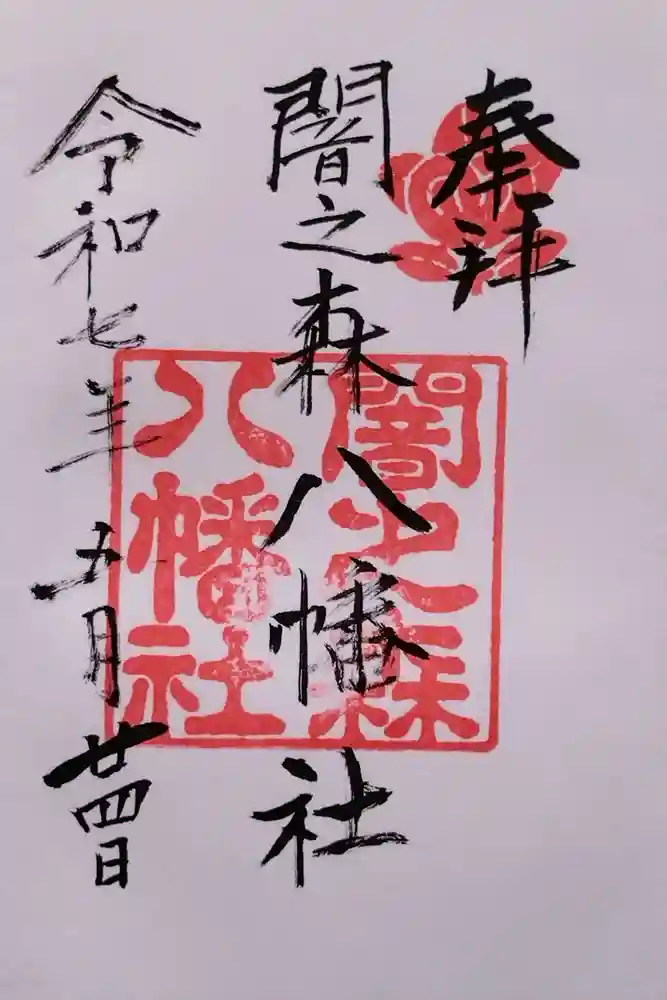 奉拝
闇之森八幡社
令和七年五月廿四日
闇之森
八幡社